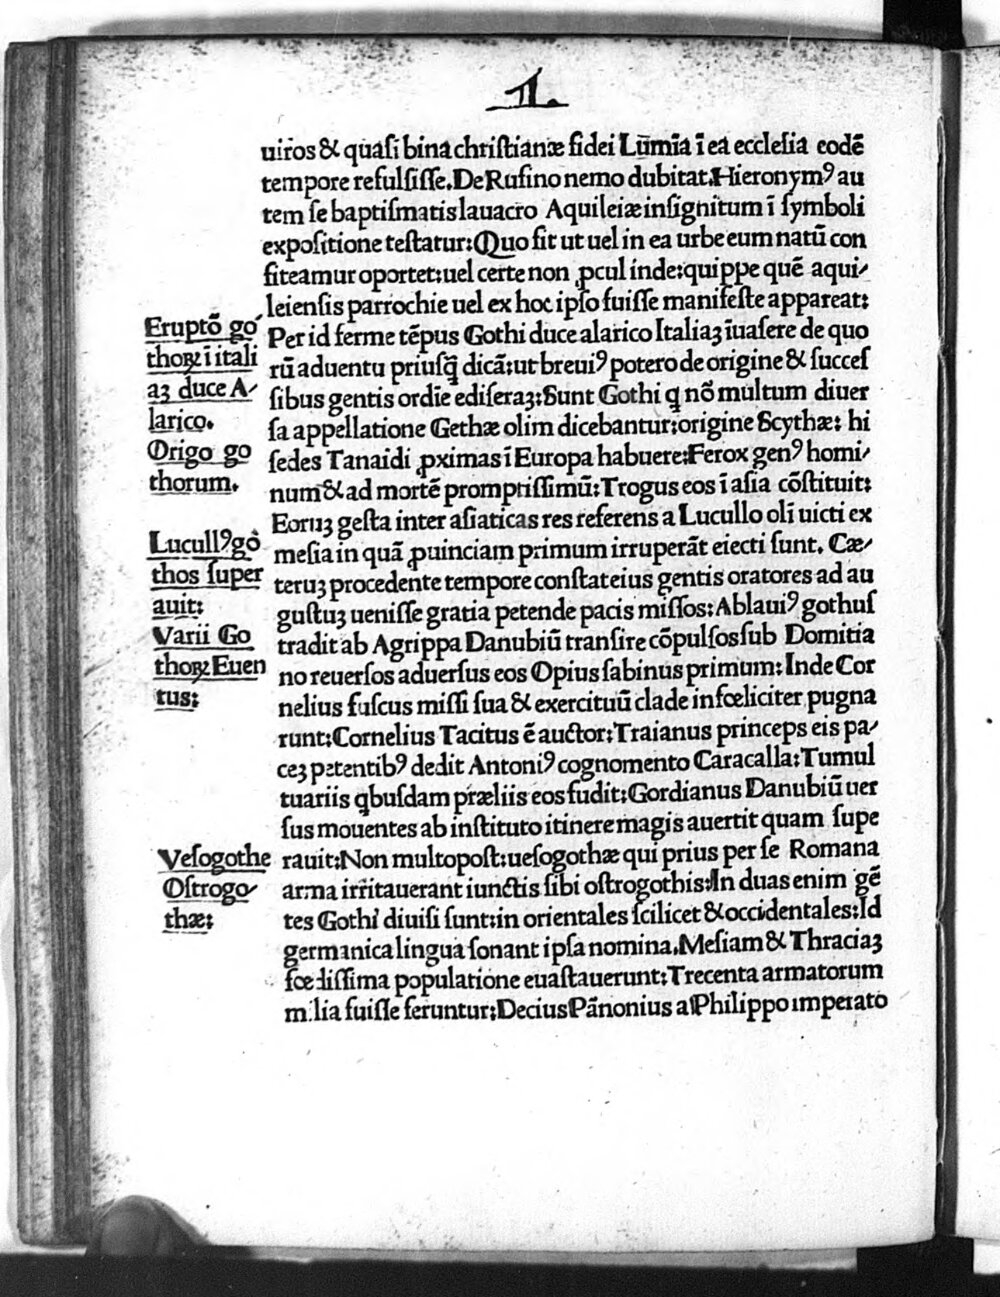 II.
uiros & quaſi bina chriſtianæ fidei Lumīa ī ea eccleſia eodē
tempore refulſiſſe. De Rufino nemo dubitat. Hieronymꝰ au
tem ſe baptiſmatis lauacro Aquileiæ inſignitum ī ſymboli
expoſitione teſtatur: Quo fit ut uel in ea urbe eum natū con
fiteamur oportet: uel certe non ꝓcul inde: quippe quē aqui⸗
leienſis parrochie uel ex hoc ipſo fuiſſe manifeſte appareat:
Per id ferme tēpus Gothi duce alarico Italiaꝫ īuaſere de quo
rū aduentu priuſq̄ dicā: ut breuiꝰ potero de origine & ſucceſ
ſibus gentis ordīe ediſeraꝫ: Sunt Gothi q nō multum diuer
ſa appellatione Gethæ olim dicebantur: origine Scythæ: hi
ſedes Tanaidi ꝓximas ī Europa habuere: Ferox genꝰ homi⸗
num & ad mortē promptiſſimū: Trogus eos ī aſia cōſtituit:
Eoruꝫ geſta inter aſiaticas res referens a Lucullo olī uicti ex
meſia in quā ꝓuinciam primum irruperāt eiecti ſunt. Cæ⸗
teruꝫ procedente tempore conſtat eius gentis oratores ad au
guſtuꝫ ueniſſe gratia petende pacis miſſos: Ablauiꝰ gothuſ
tradit ab Agrippa Danubiū tranſire cōpulſos ſub Domitia
no reuerſos aduerſus eos Opius ſabinus primum: Inde Cor
nelius fuſcus miſſi ſua & exercituū clade infœliciter pugna
runt: Cornelius Tacitus ē auctor: Traianus princeps eis pa⸗
ceꝫ petentibꝰ dedit Antoniꝰ cognomento Caracalla: Tumul
tuariis qbuſdam præliis eos fudit: Gordianus Danubiū uer
ſus mouentes ab inſtituto itinere magis auertit quam ſupe
rauit: Non multo poſt: ueſogothæ qui prius per ſe Romana
arma irritauerant iunctis ſibi oſtrogothis: In duas enim gē
tes Gothi diuiſi ſunt: in orientales ſcilicet & occidentales: Id
germanica lingua ſonant ipſa nomina. Meſiam & Thraciaꝫ
fœdiſſima populatione euaſtauerunt: Trecenta armatorum
milia fuiſſe feruntur: Decius Pānonius a Philippo imperato
Eruptō go⸗
thoꝝ ī itali
aꝫ duce A⸗
larico.
Origo go
thorum.
Lucullꝰ go
thos ſuper
auit:
Varii Go
thoꝝ Euen
tus:
Veſogothe
Oſtrogo⸗
thæ: